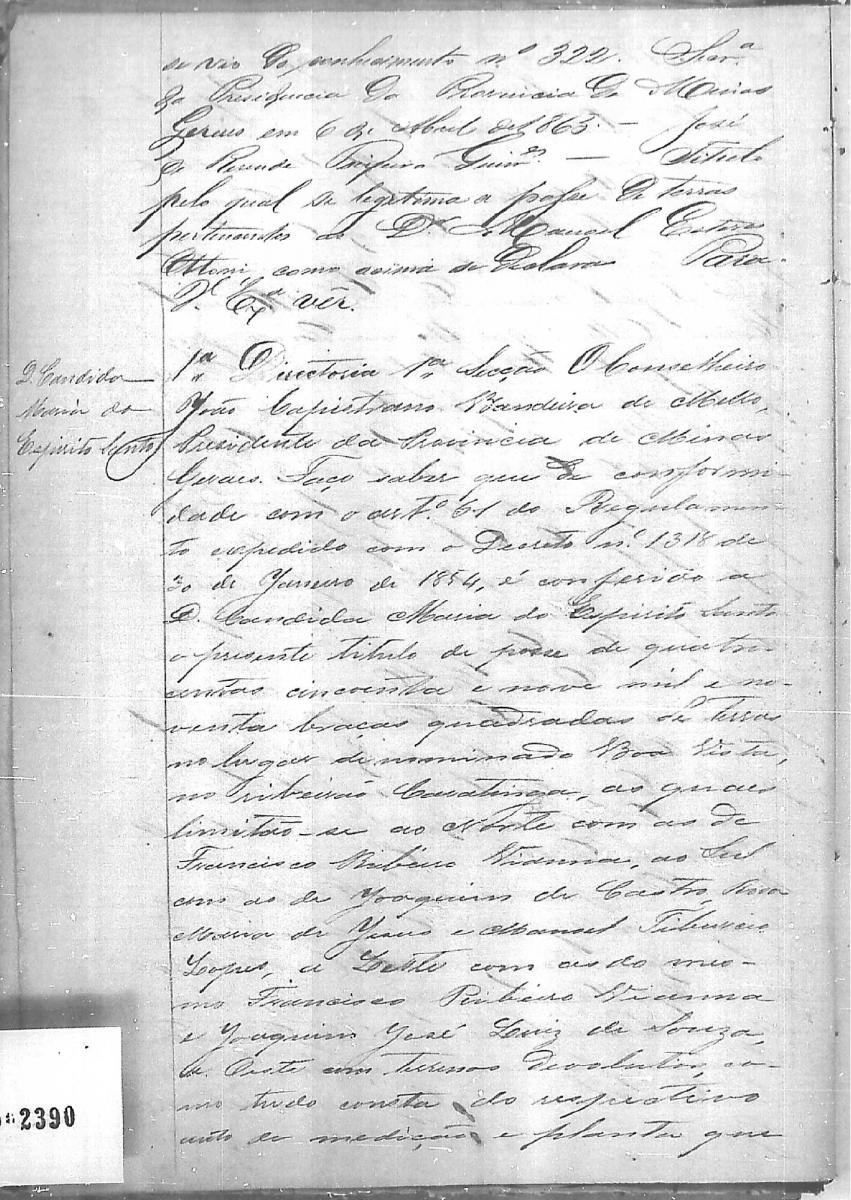 se vio do conhecimento nº 322. Secrª
da Presidencia da Provincia de Minas
Geraes em 6 de Abril de 1863. — José
de Rezende Guimes — Titulo
pelo qual se legitima a posse de terras
pertencentes ao Dr. Manoel Esteves
Ottoni como acima se declara Para
V. Exª vêr.
D. Candida
Maria do
Espirito Santo
1ª Directoria 1ª Secção O Conselheiro
João Capistrano Bandeira de Mello,
Presidente da Provincia de Minas
Geraes. Faço saber que de conformi-
dade com o artº 61 do Regulamen-
to expedido com o Decreto nº 1318 de
30 de Janeiro de 1854, é conferido a
D. Candida Maria do Espirito Santo
o presente titulo de posse de quatro-
centas cincoenta e nove mil e no-
venta braças quadradas de terras
no lugar denominado Boa Vista,
no ribeirão Caratinga, as quaes
limitão-se ao Norte com as de
Francisco Ribeiro Vianna, ao Sul
com as de Joaquim de Castro, Rosa
Maria de Jesus e Manoel Tiburcio
Lopes, a Leste com as do mes-
mo Francisco Ribeiro Vianna
e Joaquim José Luiz de Souza,
a Oeste com terrenos devolutos, co-
mo tudo consta do respectivo
auto de medição e planta que
2390